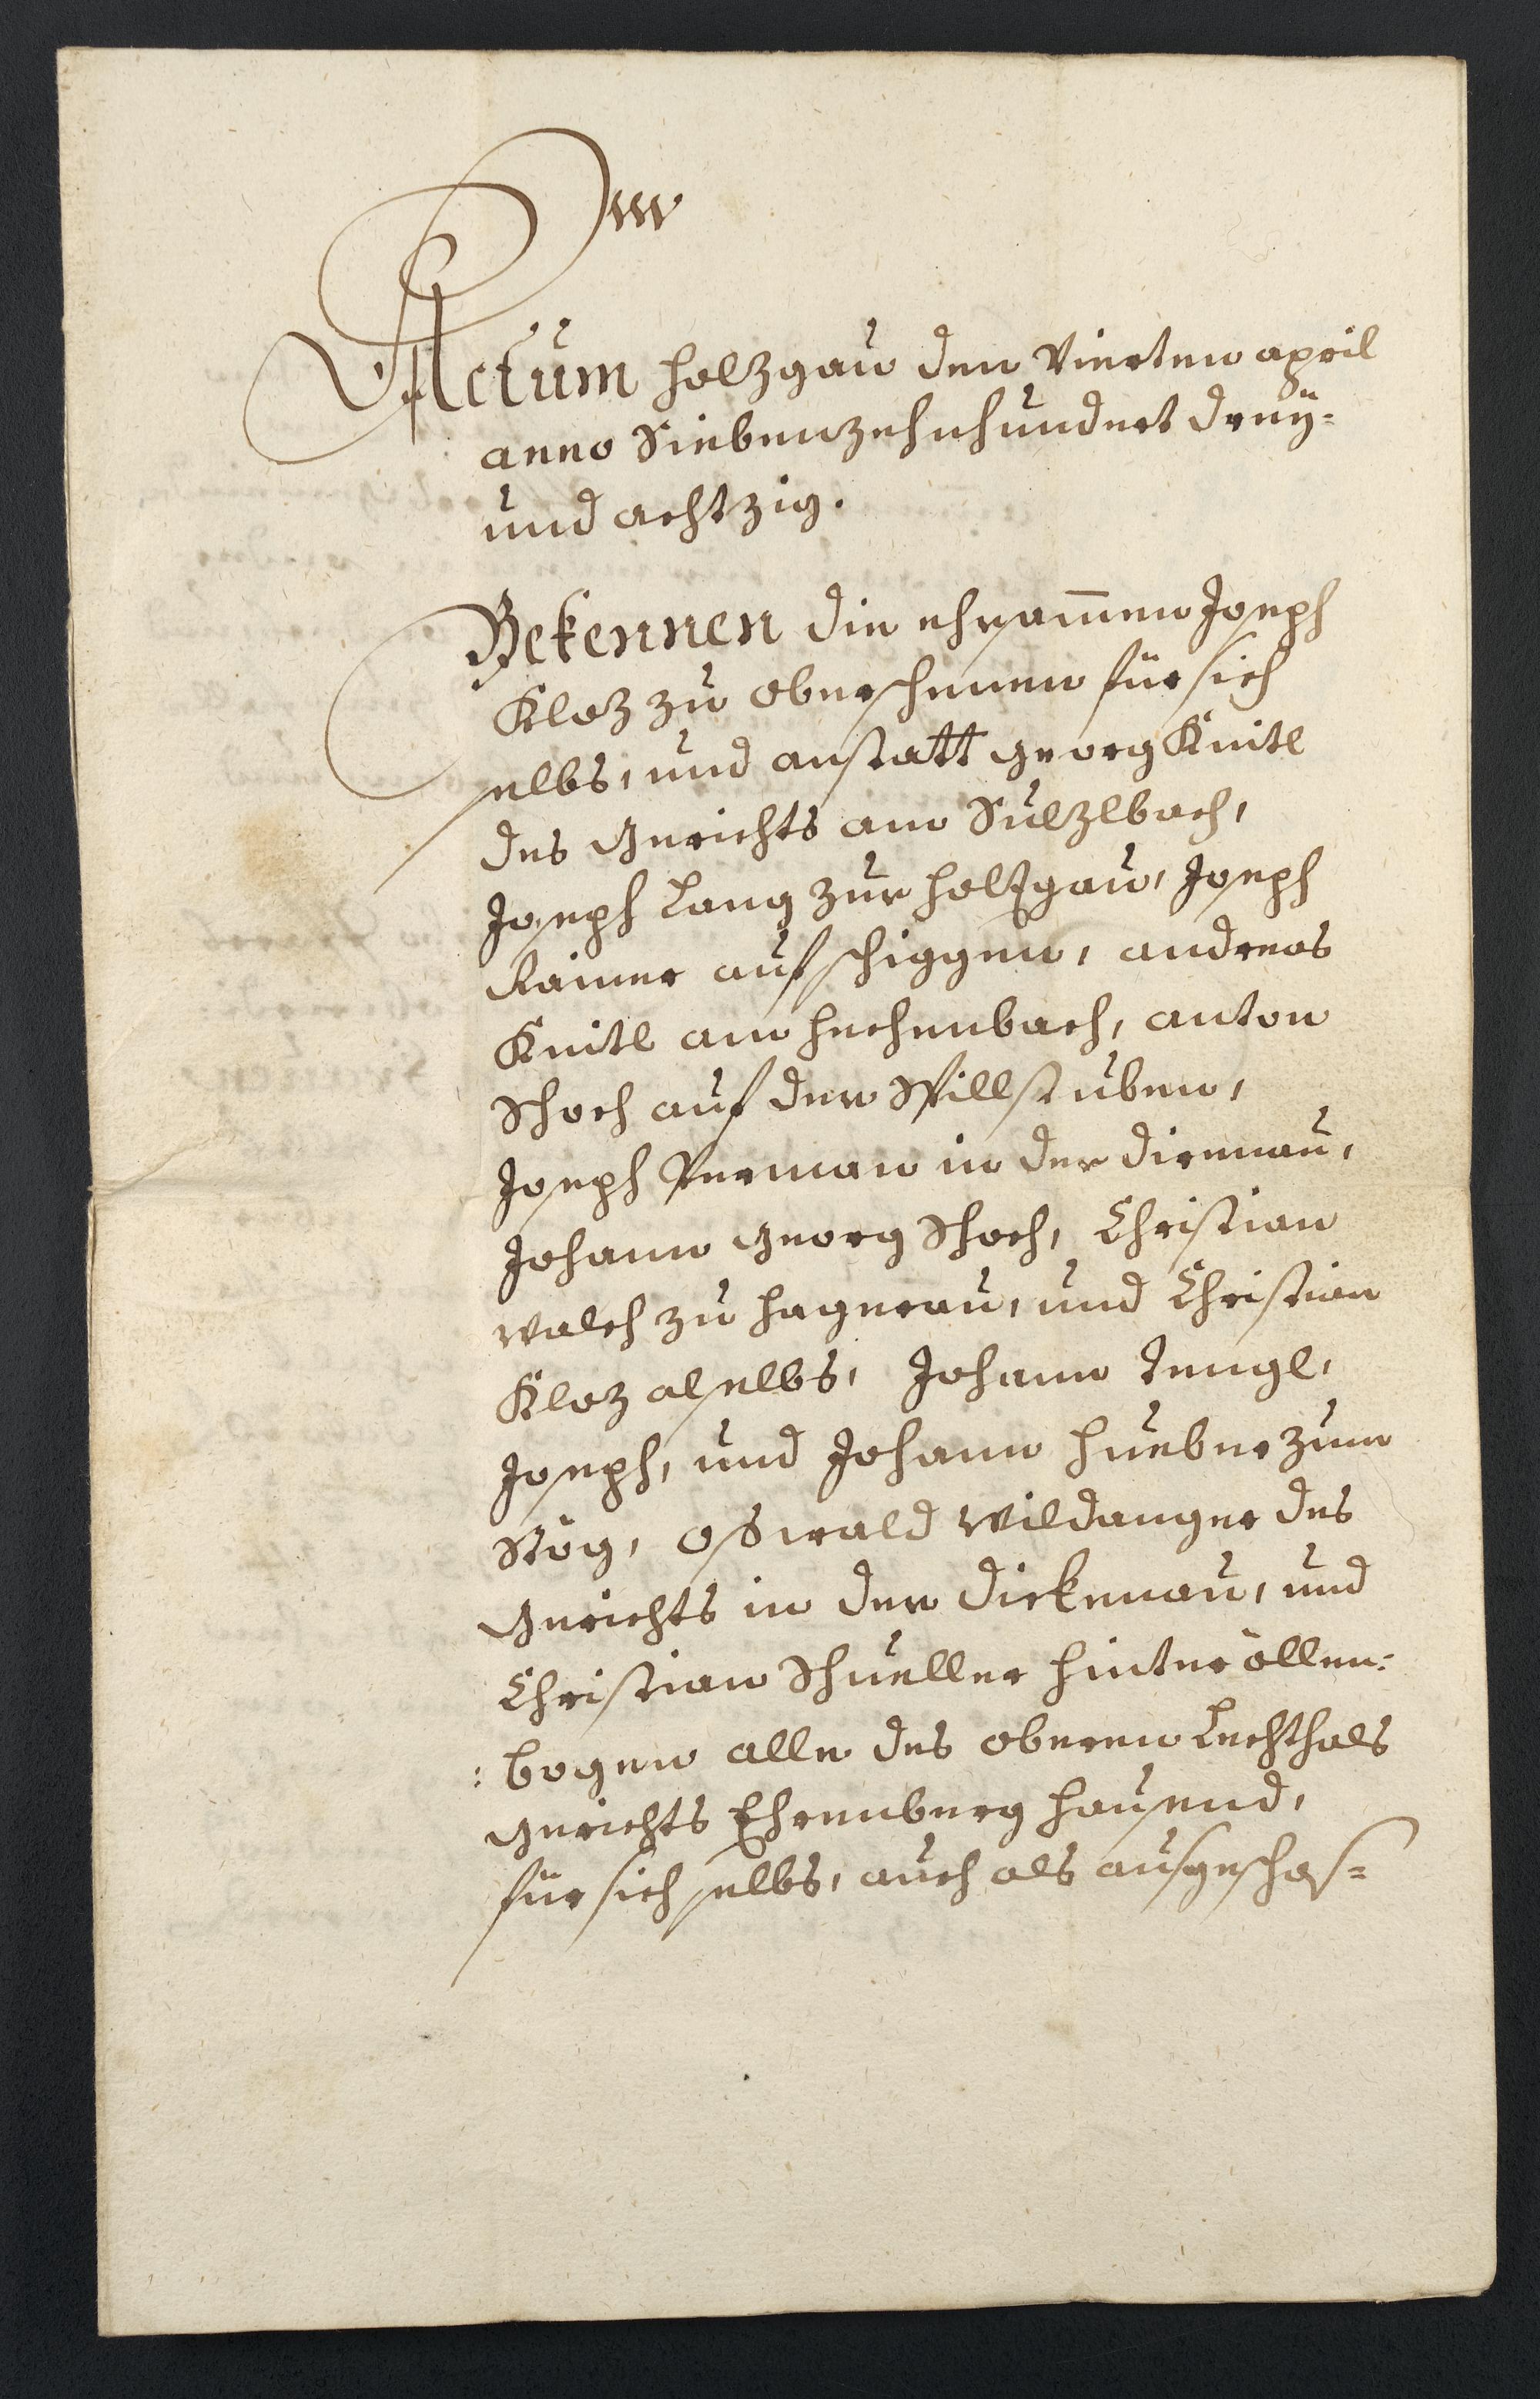 Actum Holzgau den Vierten april
anno Siebenzehnhundert dreÿ=
und achtzig.
Bekennen die ehrsam̄en Joseph
Kloz zu Obersthenen für sich
selbs, und anstatt Georg Knitl
des Gerichts am Sulzlbach,
Joseph Lang zur Holzgau, Joseph
Rainer auf Schiggen, andreas
Knitl am Hechenbach, anton
Schoch auf der Spillstuben,
Joseph Perman in der Dirnnau,
Johann Georg Schoch, Christian
walch zu Hagerau, und Christian
Kloz alselbs, Johann Tengl,
Joseph, und Johann Hueber zum
Stög, Oswald wildanger des
Gerichts in der Dickenau, und
Christian Schueller hinter öllen=
:bogen alle des oberen Lechthals
Gerichts Ehrenberg hausend,
für sich selbs, auch als ausgeschos=